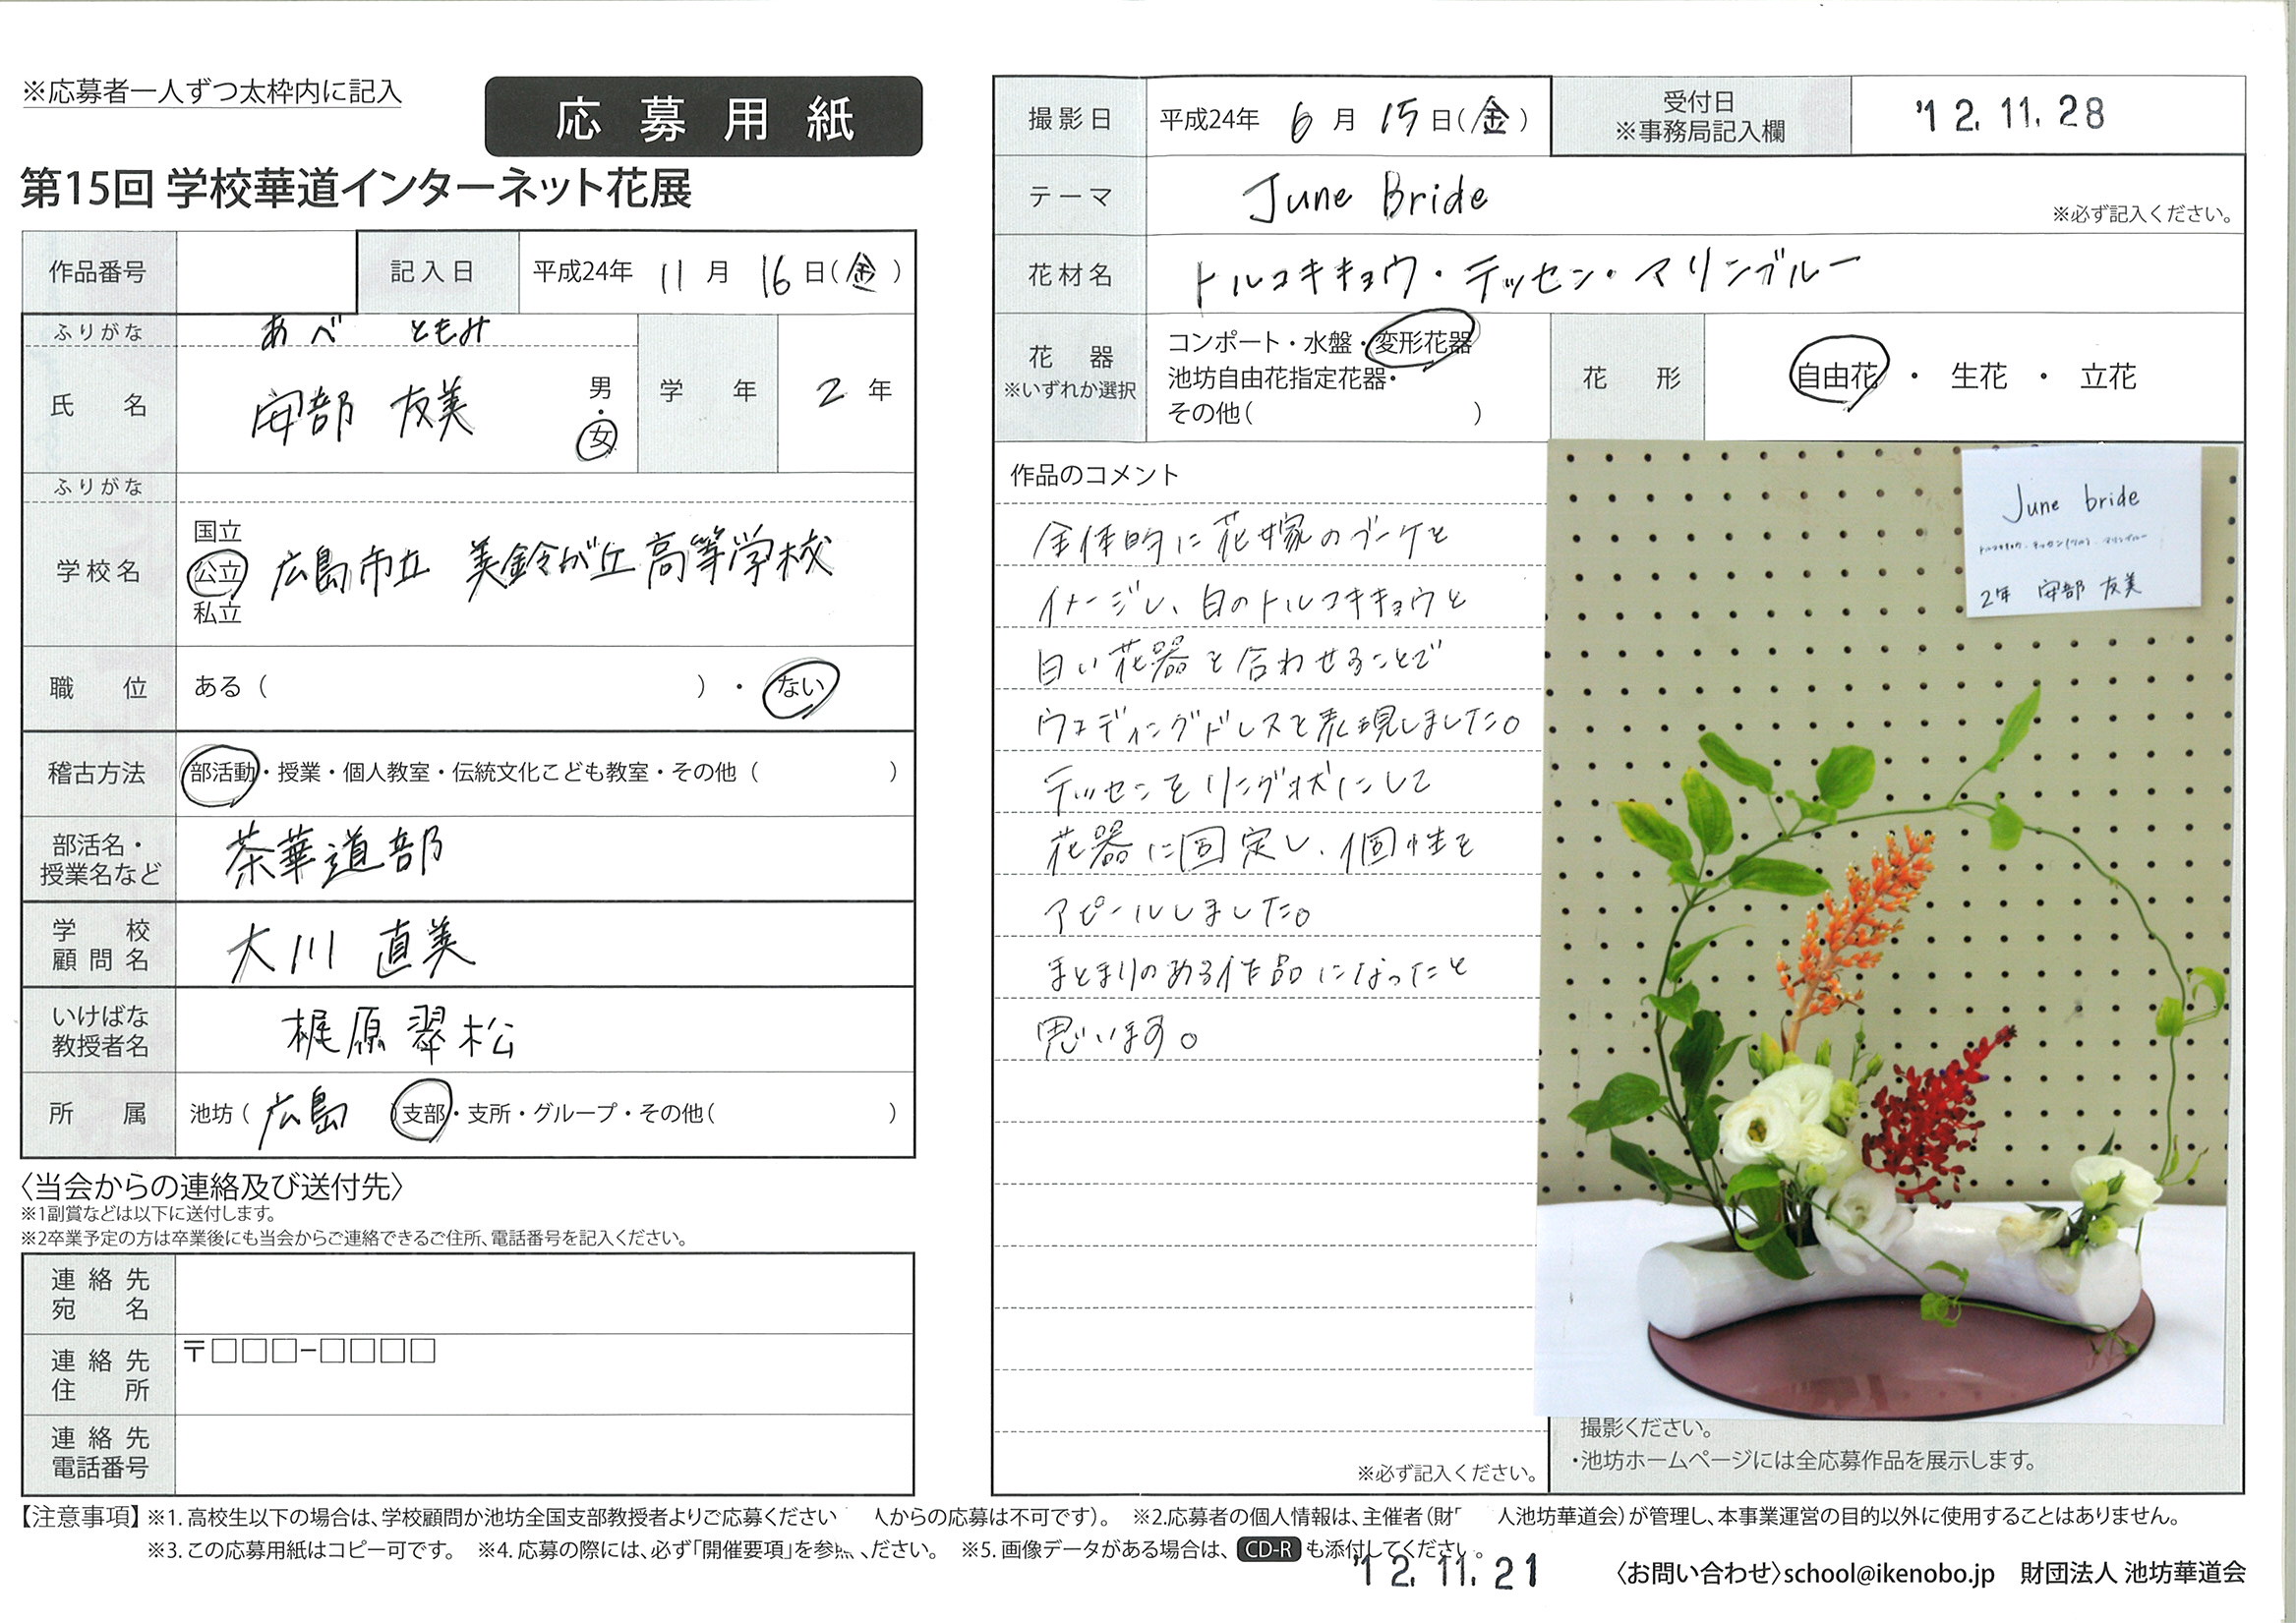 ※応募者一人ずつ太枠内に記入
応募用紙
第15回 学校華道インターネット花展
作品番号
記入日 平成24年 11月 16日(金)
ふりがな あべ ともみ
氏名 安部 友美 男・女
学年 2年
ふりがな
学校名 国立 公立 私立 広島市立 美鈴が丘高等学校
職位 ある( )・ない
稽古方法 部活動・授業・個人教室・伝統文化こども教室・その他( )
部活名・授業名など 茶華道部
学校顧問名 大川 直美
いけばな教授者名 梶原 翠松
所属 池坊( 広島 )支部・支所・グループ・その他( )
〈当会からの連絡及び送付先〉
※1副賞などは以下に送付します。
※2卒業予定の方は卒業後にも当会からご連絡できるご住所、電話番号を記入ください。
連絡先宛名
連絡先住所 〒□□□-□□□□
連絡先電話番号
撮影日 平成24年 6月 15日(金)
受付日 ※事務局記入欄 '12.11.28
テーマ June Bride ※必ず記入ください。
花材名 トルコキキョウ・テッセン・マリンブルー
花器 ※いずれか選択 コンポート・水盤・変形花器
池坊自由花指定花器・
その他( )
花形 自由花・生花・立花
作品のコメント
全体的に花嫁のブーケを
イメージし、白のトルコキキョウと
白い花器を合わせることで
ウェディングドレスを表現しました。
テッセンをリング状にして
花器に固定し、個性を
アピールしました。
まとまりのある作品になったと
思います。
※必ず記入ください。
June bride
トルコキキョウ・テッセン(つる)・マリンブルー
2年 安部 友美
撮影ください。
・池坊ホームページには全応募作品を展示します。
【注意事項】※1. 高校生以下の場合は、学校顧問か池坊全国支部教授者よりご応募ください 人からの応募は不可です)。 ※2.応募者の個人情報は、主催者(財 人池坊華道会)が管理し、本事業運営の目的以外に使用することはありません。
※3. この応募用紙はコピー可です。 ※4. 応募の際には、必ず「開催要項」を参 ください。 ※5. 画像データがある場合は、CD-Rも添付してください。
'12.11.21
〈お問い合わせ〉school@ikenobo.jp 財団法人 池坊華道会